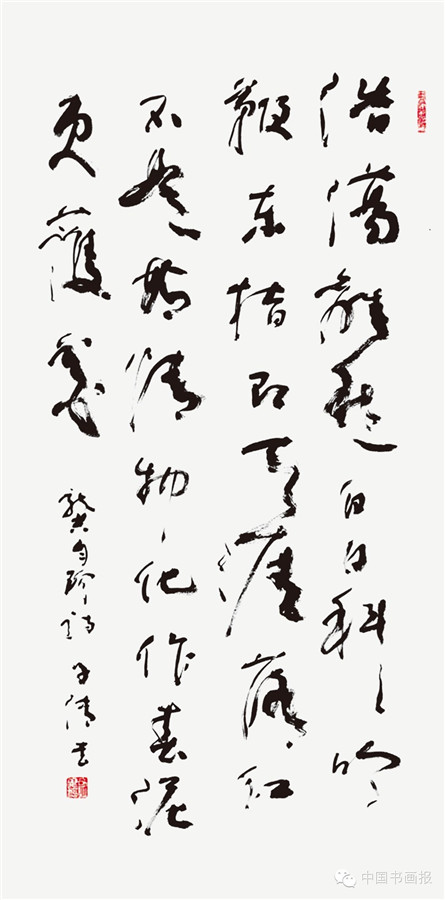 浩蕩離愁白日斜吟
鞭東指即天涯落红
不是無情物化作春泥
更護花
龔自珍诗
中国书画报